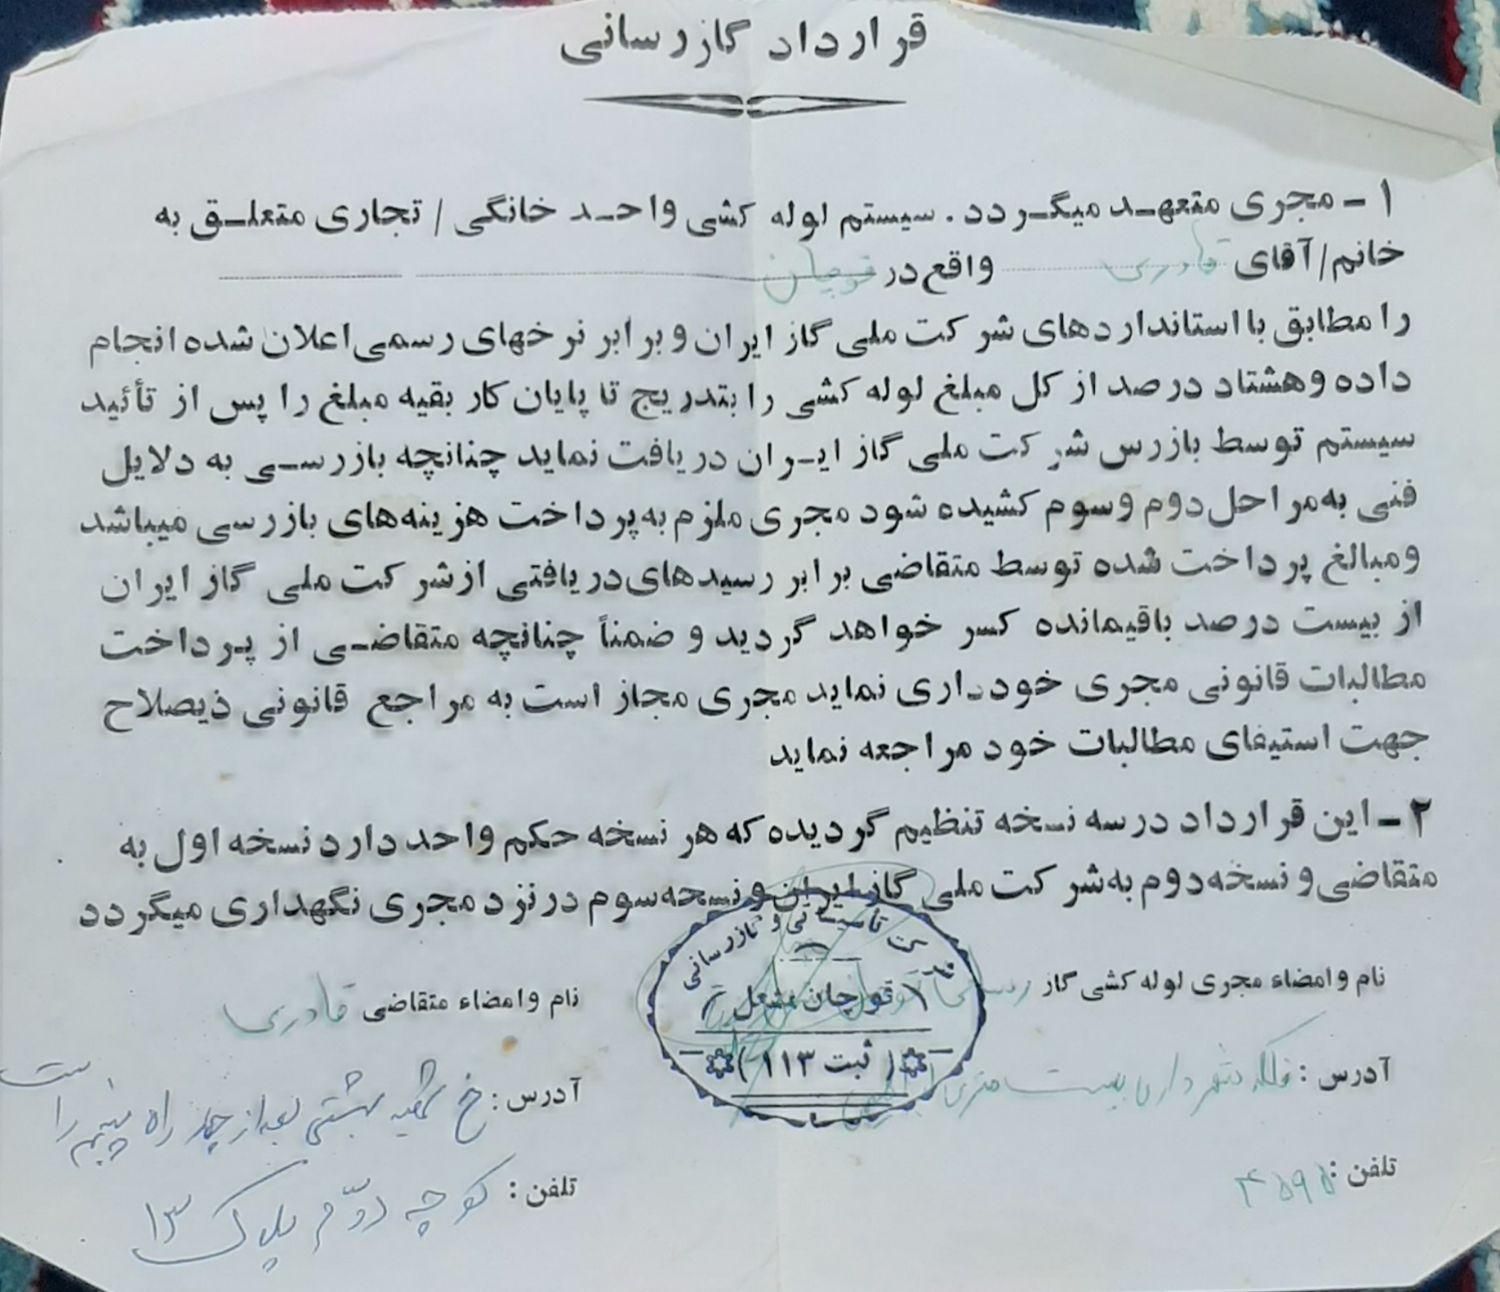 قرارداد گازرسانی
۱ - مجری متعهد میگردد . سیستم لوله کشی واحد خانگی / تجاری متعلق به
خانم/آقای قادری واقع در قوچان
را مطابق با استانداردهای شرکت ملی گاز ایران و برابر نرخهای رسمی اعلان شده انجام
داده و هشتاد درصد از کل مبلغ لوله کشی را بتدریج تا پایان کار بقیه مبلغ را پس از تأئید
سیستم توسط بازرس شرکت ملی گاز ایران دریافت نماید چنانچه بازرسی به دلایل
فنی به مراحل دوم و سوم کشیده شود مجری ملزم به پرداخت هزینه‌های بازرسی میباشد
و مبالغ پرداخت شده توسط متقاضی برابر رسیدهای دریافتی از شرکت ملی گاز ایران
از بیست درصد باقیمانده کسر خواهد گردید و ضمناً چنانچه متقاضی از پرداخت
مطالبات قانونی مجری خودداری نماید مجری مجاز است به مراجع قانونی ذیصلاح
جهت استیفای مطالبات خود مراجعه نماید
۲ - این قرارداد در سه نسخه تنظیم گردیده که هر نسخه حکم واحد دارد نسخه اول به
متقاضی و نسخه دوم به شرکت ملی گاز ایران و نسخه سوم در نزد مجری نگهداری میگردد
شرکت تاسیساتی و گازرسانی
قوچان مشعل
( ثبت ۱۱۳ )
نام و امضاء مجری لوله کشی گاز
آدرس : فلکه شهرداری بیست متری
تلفن : ۴۵۹۵
نام و امضاء متقاضی قادری
آدرس : خ شهید بهشتی بعد از چهار راه سمت راست
تلفن : کوچه دوّم پلاک ۱۳